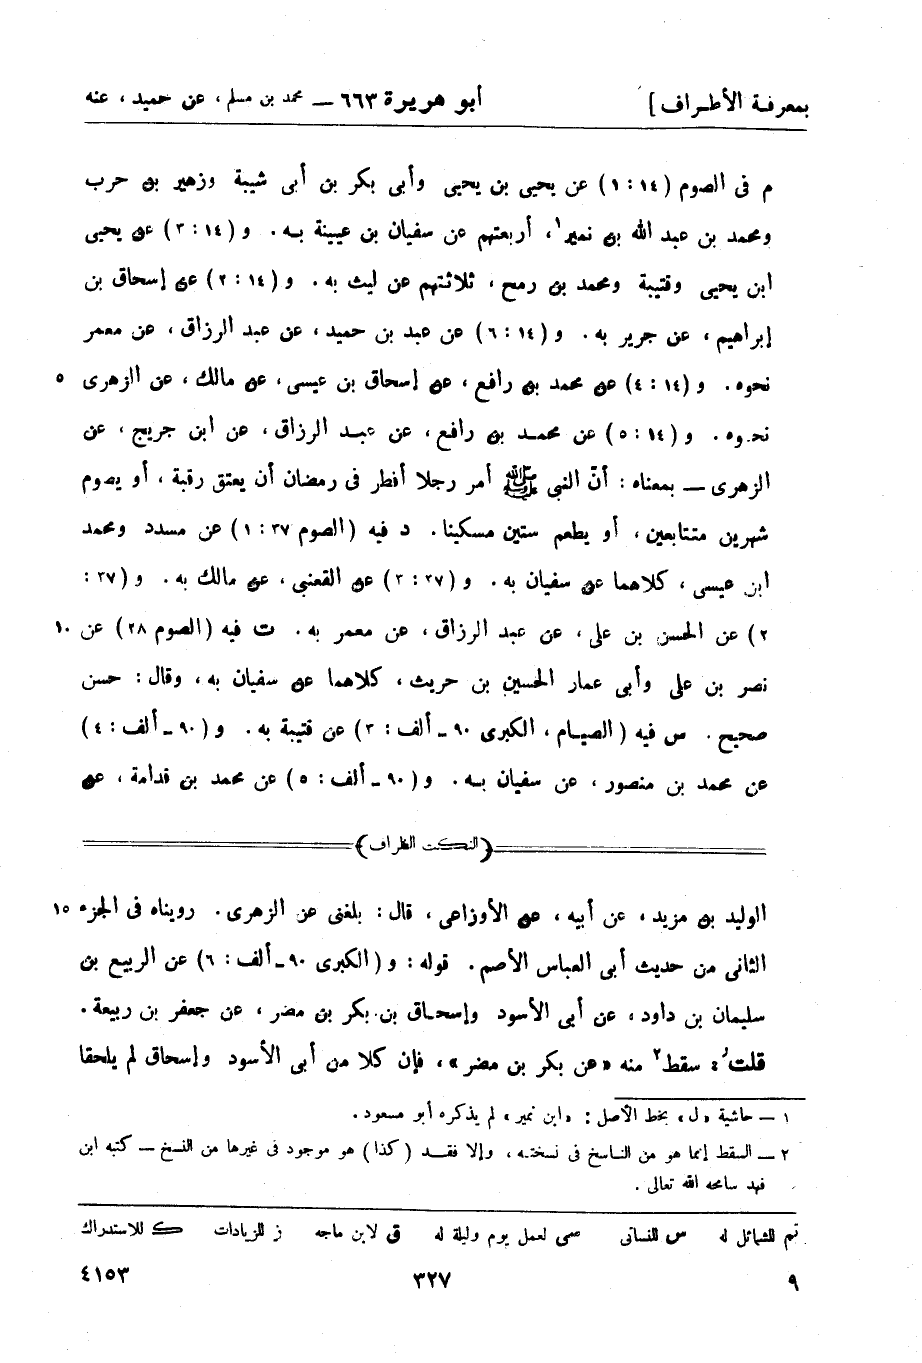 بمعرفة الأطراف] أبو هريرة ٦٦٣ — محمد بن مسلم، عن حميد، عنه
م فى الصوم (١٤ : ١) عن يحيى بن يحيى وأبى بكر بن أبى شيبة وزهير بن حرب
ومحمد بن عبد الله بن نمير١، أربعتهم عن سفيان بن عيينة به. و (١٤ : ٣) عن يحيى
ابن يحيى وقتيبة ومحمد بن رمح، ثلاثتهم عن ليث به. و (١٤ : ٢) عن إسحاق بن
إبراهيم، عن جرير به. و (١٤ : ٦) عن عبد بن حميد، عن عبد الرزاق، عن معمر
نحوه. و (١٤ : ٤) عن محمد بن رافع، عن إسحاق بن عيسى، عن مالك، عن الزهرى ٥
نحوه. و (١٤ : ٥) عن محمد بن رافع، عن عبد الرزاق، عن ابن جريج، عن
الزهرى — بمعناه : أنّ النبى ﷺ أمر رجلا أفطر فى رمضان أن يعتق رقبة، أو يصوم
شهرين متتابعين، أو يطعم ستين مسكينا. د فيه (الصوم ٣٧ : ١) عن مسدد ومحمد
ابن عيسى، كلاهما عن سفيان به. و (٣٧ : ٣) عن القعنبى، عن مالك به. و (٣٧ :
٢) عن الحسن بن على، عن عبد الرزاق، عن معمر به. ت فيه (الصوم ٢٨) عن ١٠
نصر بن على وأبى عمار الحسين بن حريث، كلاهما عن سفيان به، وقال : حسن
صحيح. س فيه (الصيام، الكبرى ٩٠ - ألف : ٣) عن قتيبة به. و (٩٠ - ألف : ٤)
عن محمد بن منصور، عن سفيان به. و (٩٠ - ألف : ٥) عن محمد بن قدامة، عن
(النكت الظراف)
الوليد بن مزيد، عن أبيه، عن الأوزاعى، قال : بلغنى عن الزهرى. رويناه فى الجزء ١٥
الثانى من حديث أبى العباس الأصم. قوله : و (الكبرى ٩٠ - ألف : ٦) عن الربيع بن
سليمان بن داود، عن أبى الأسود وإسحاق بن بكر بن مضر، عن جعفر بن ربيعة.
قلت : سقط٢ منه «عن بكر بن مضر»، فإن كلا من أبى الأسود وإسحاق لم يلحقا
١ — حاشية «ل» بخط الأصل : «ابن نمير» لم يذكره أبو مسعود.
٢ — السقط إنما هو من الناسخ فى نسخته، وإلا فقد (كذا) هو موجود فى غيرها من النسخ — كتبه ابن
فهد سامحه الله تعالى.
تم للشمائل له س للنسائى سى لعمل يوم وليلة له ق لابن ماجه ز للزيادات ك للاستدراك
٩ ٣٢٧ ٤١٥٣